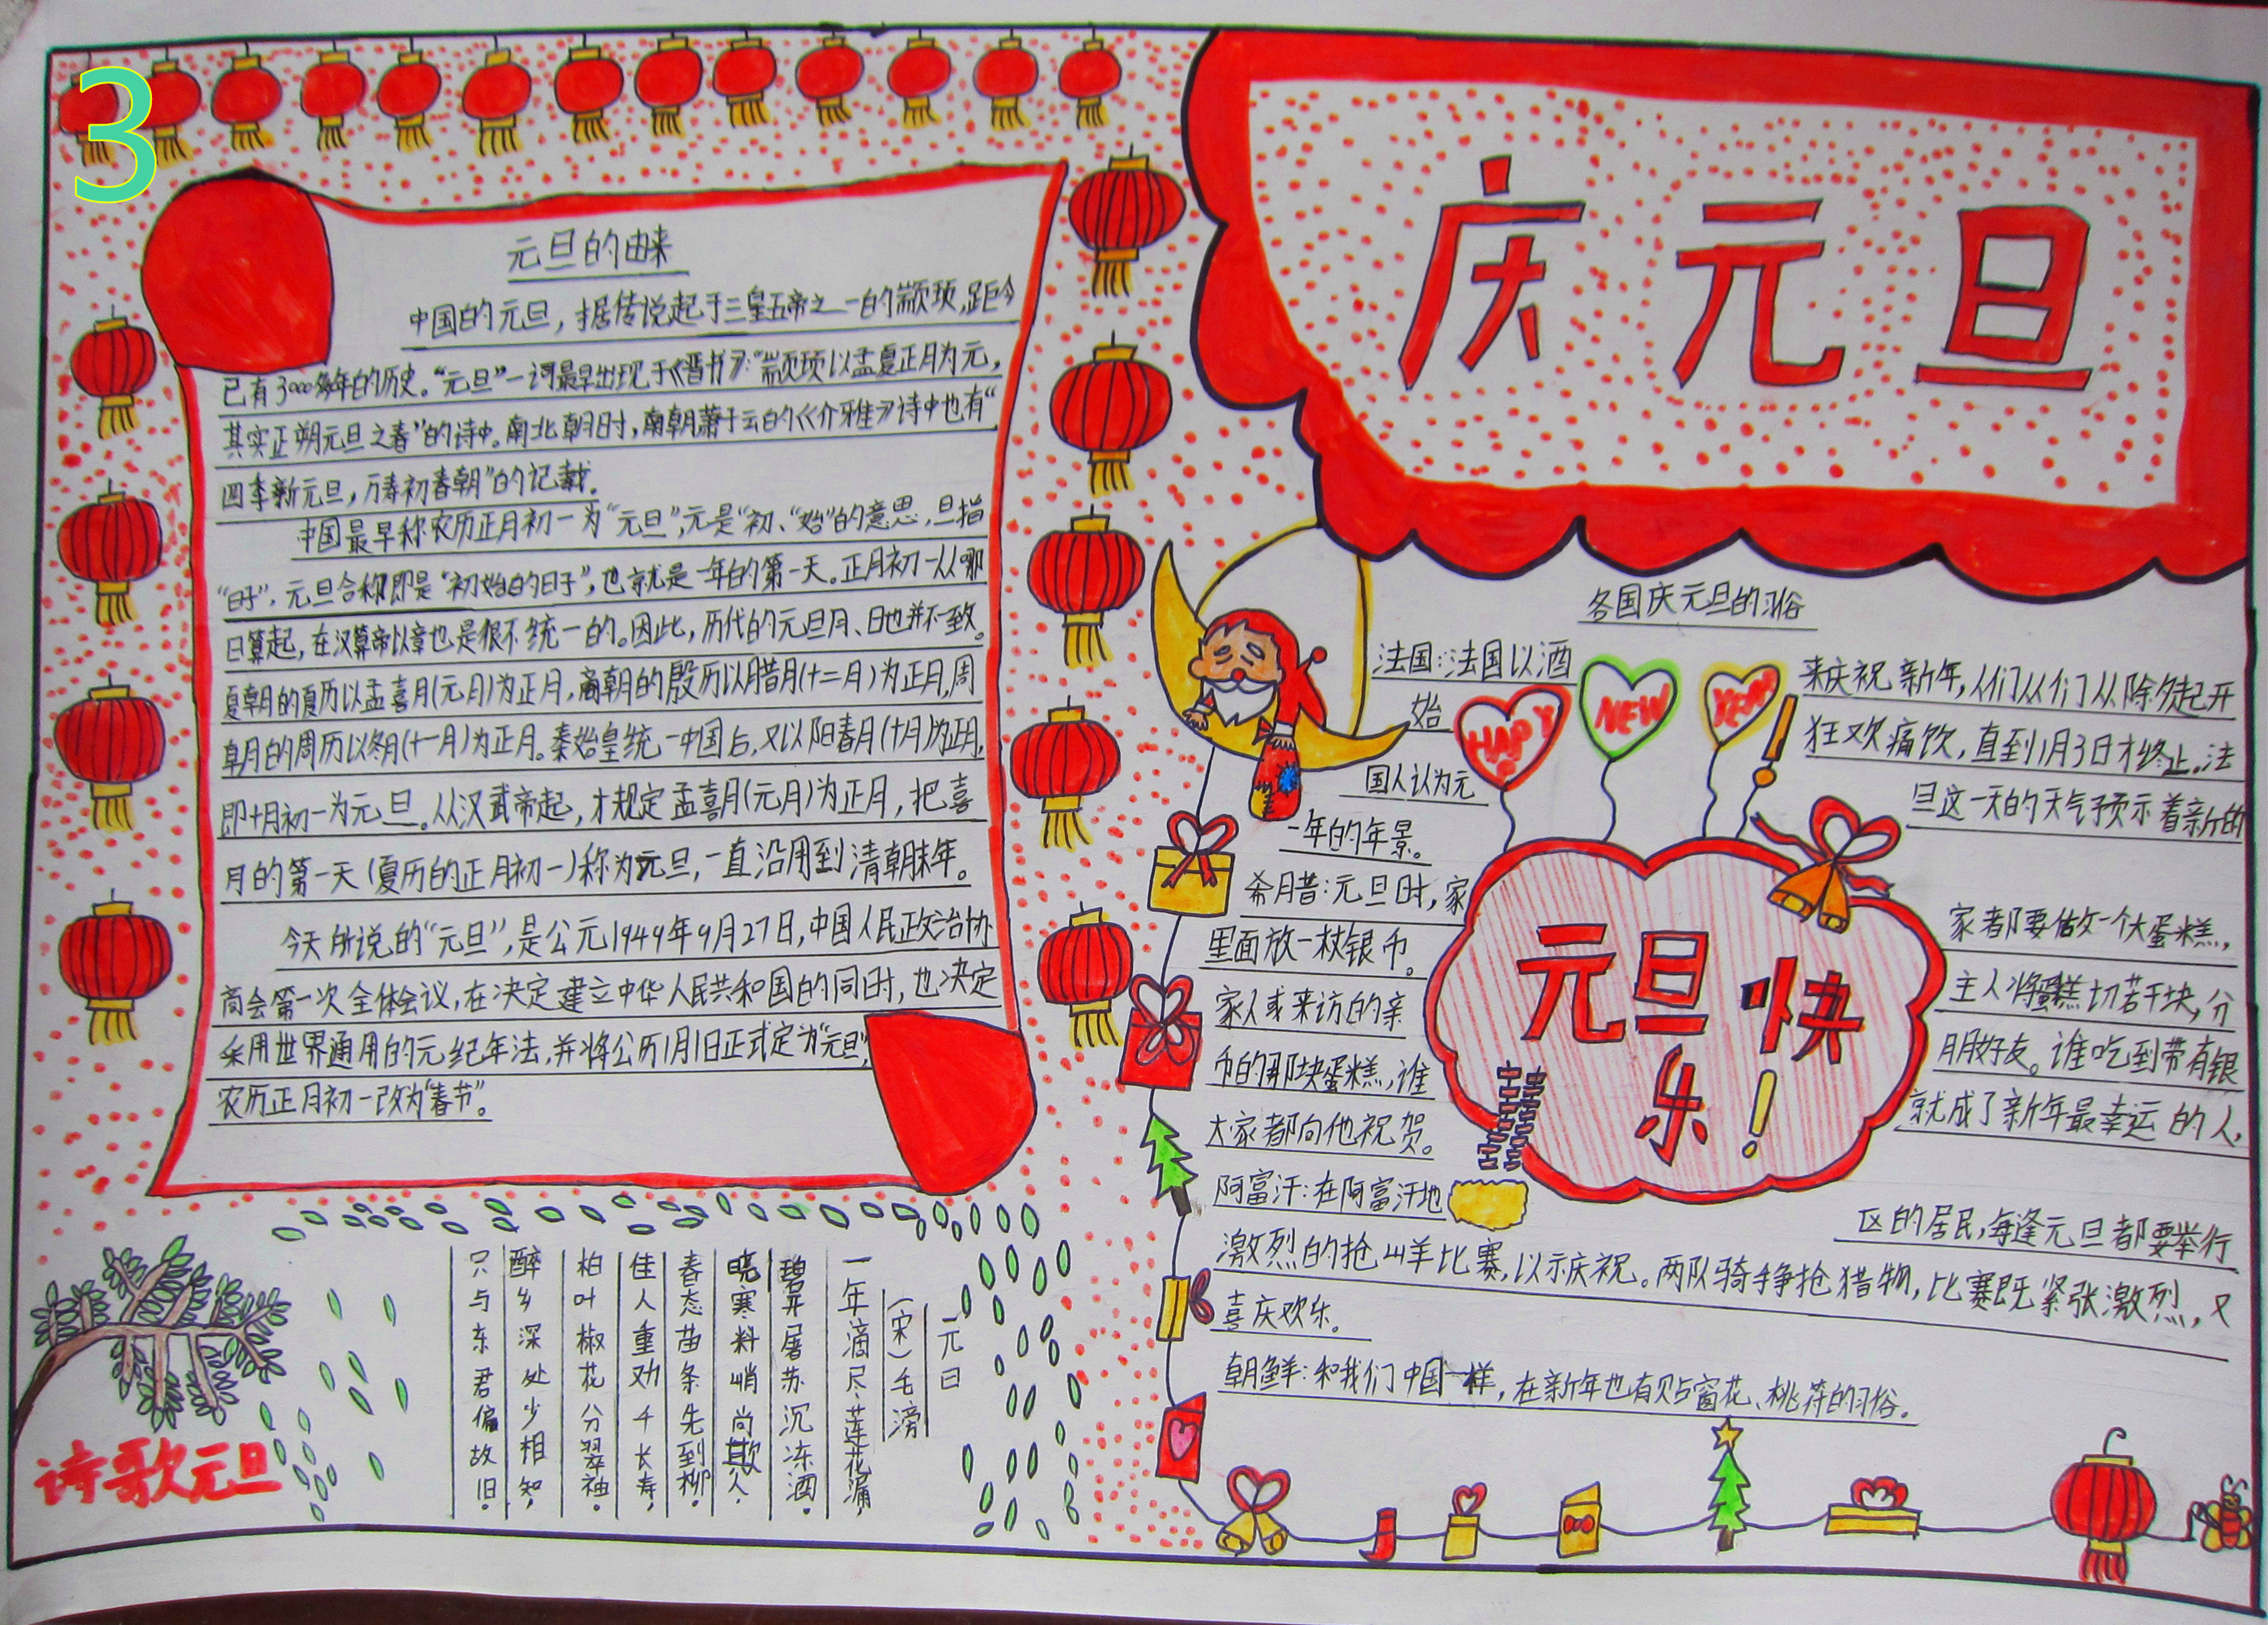 3
庆元旦
元旦的由来
中国的元旦，据传说起于三皇五帝之一的颛顼，距今
已有3000多年的历史。“元旦”一词最早出现于《晋书》：“颛顼以孟夏正月为元，
其实正朔元旦之春”的诗中。南北朝时，南朝萧子云的《介雅》诗中也有“
四季新元旦，万寿初春朝”的记载。
中国最早称农历正月初一为“元旦”，元是“初、“始”的意思，旦指
“日子”，元旦合称即是“初始的日子”，也就是一年的第一天。正月初一从哪
日算起，在汉算帝以章也是很不统一的。因此，历代的元旦月、日也并不一致。
夏朝的夏历以孟喜月(元月)为正月，商朝的殷历以腊月(十二月)为正月，周
朝的周历以冬月(十一月)为正月。秦始皇统一中国后，又以阳春月(十月)为正月，
即十月初一为元旦。从汉武帝起，才规定孟喜月(元月)为正月，把喜
月的第一天(夏历的正月初一)称为元旦，一直沿用到清朝末年。
今天所说的“元旦”，是公元1949年9月27日，中国人民政治协
商会第一次全体会议，在决定建立中华人民共和国的同时，也决定
采用世界通用的元纪年法，并将公历1月1日正式定为“元旦”，
农历正月初一改为“春节”。
各国庆元旦的习俗
法国：法国以酒 来庆祝新年，人们从们从除夕起开
始 狂欢痛饮，直到1月3日才终止。法
国人认为元 旦这一天的天气预示着新的
一年的年景。
HAPPY
NEW
YEAR
希腊：元旦时，家 家都要做一个大蛋糕，
里面放一枚银币。 主人将蛋糕切若干块，分
家人或来访的亲 朋好友。谁吃到带有银
币的那块蛋糕，谁 就成了新年最幸运的人，
大家都向他祝贺。
元旦快
乐！
阿富汗：在阿富汗地 区的居民，每逢元旦都要举行
激烈的抢山羊比赛，以示庆祝。两队骑手争抢猎物，比赛既紧张激烈，又
喜庆欢乐。
朝鲜：和我们中国一样，在新年也有贴窗花、桃符的习俗。
元日
(宋)毛滂
一年滴尽莲花漏，
碧井屠苏沉冻酒。
晓寒料峭尚欺人，
春态苗条先到柳。
佳人重劝千长寿，
柏叶椒花分翠袖。
醉乡深处少相知，
只与东君偏故旧。
诗歌元旦